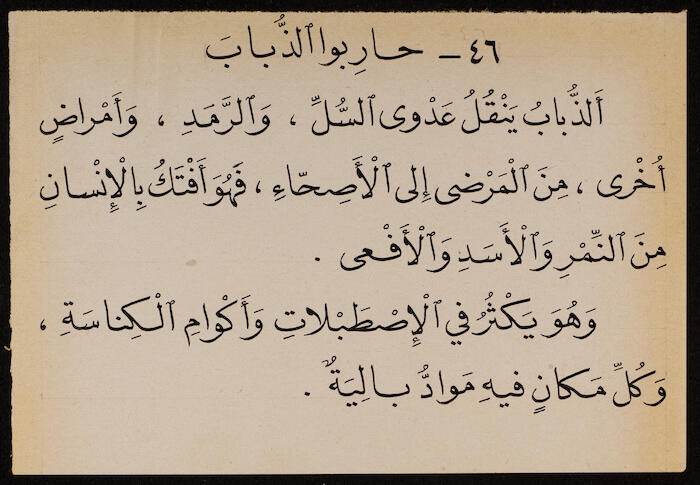 ٤٦ - حارِبوا ٱلذُّبابَ
أَلذُّبابُ يَنْقُلُ عَدْوى ٱلسُّلِّ ، وَٱلرَّمَدِ ، وَأَمْراضٍ
أُخْرى ، مِنَ ٱلْمَرْضى إِلى ٱلْأَصِحّاءِ ، فَهُوَ أَفْتَكُ بِٱلْإِنْسانِ
مِنَ ٱلنِّمْرِ وَٱلْأَسَدِ وَٱلْأَفْعى .
وَهُوَ يَكْثُرُ في ٱلْإِصْطَبْلاتِ وَأَكْوامِ ٱلْكِناسَةِ ،
وَكُلِّ مَكانٍ فيهِ مَوادُّ بالِيَةٌ .